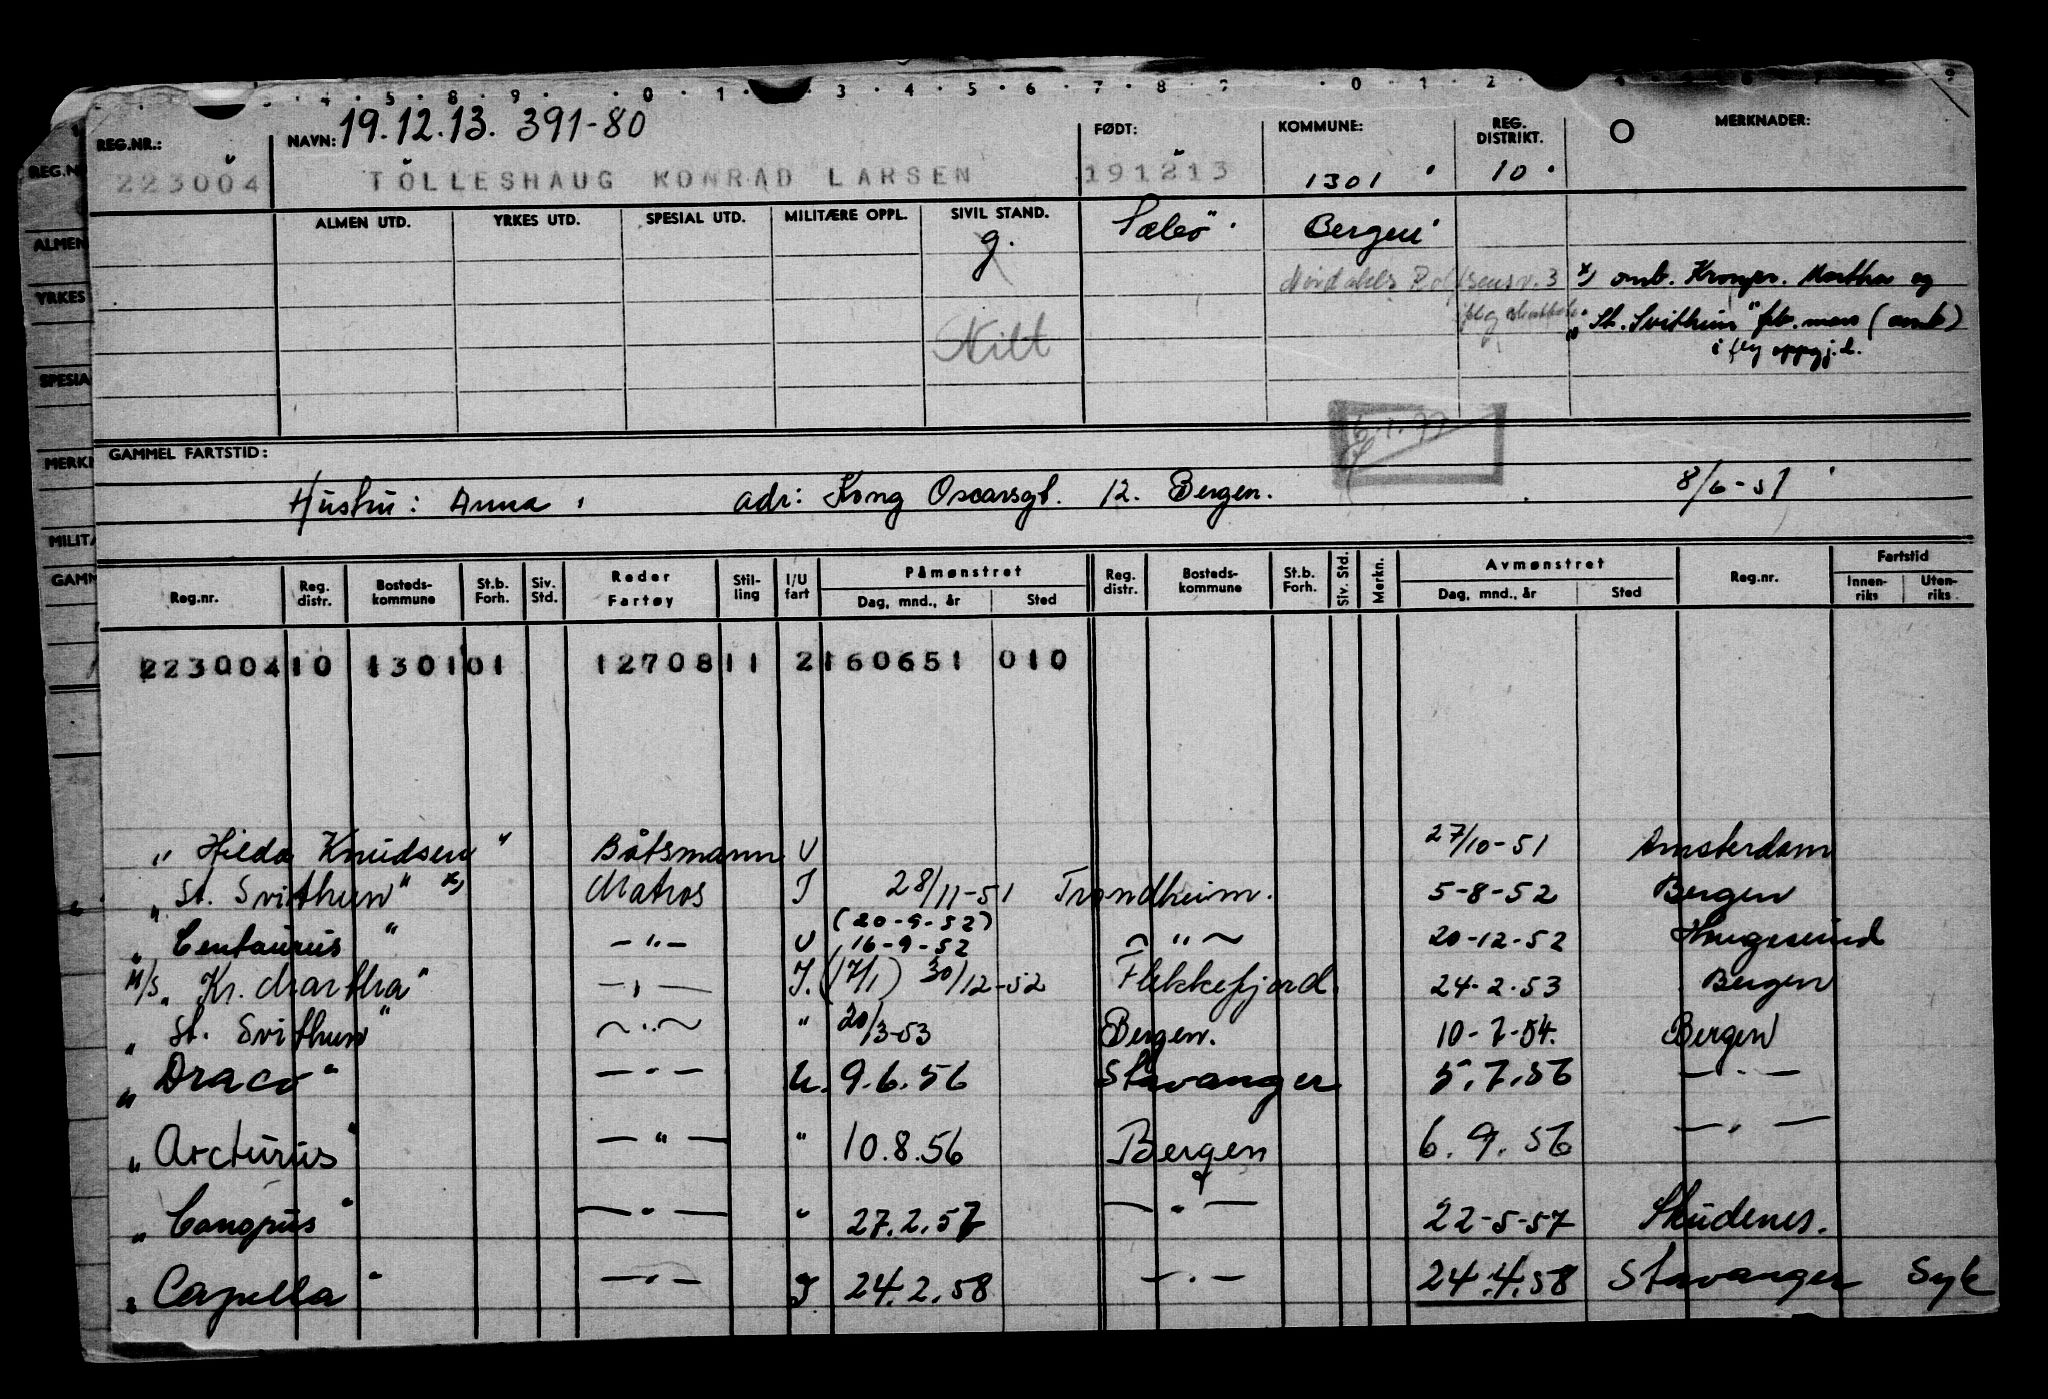 REG.NR.: NAVN: 19.12.13. 391-80 FØDT: KOMMUNE: REG. DISTRIKT. MERKNADER:
223004 TÖLLESHAUG KONRAD LARSEN 191213 1301 10
ALMEN UTD. YRKES UTD. SPESIAL UTD. MILITÆRE OPPL. SIVIL STAND. Sæbö Bergen
g.
3 x) omb. Kronpr. Martha og
"St. Svithun" feb. mars (omb)
i flg oppgj.l.
Skilt
GAMMEL FARTSTID:
Hustru: Anna, adr: Kong Oscarsgt. 12. Bergen. 8/6-51
Reg.nr. Reg. distr. Bosteds-kommune St.b. Forh. Siv. Std. Reder Fartøy Stil-ling I/U fart Påmønstret Dag, mnd., år Sted Reg. distr. Bosteds-kommune St.b. Forh. Siv. Std. Merkn. Avmønstret Dag, mnd., år Sted Reg.nr. Fartstid Innen-riks Uten-riks
223004 10 1301 01 12708 11 2 160651 010
"Hilda Knudsen" Båtsmann U 27/10-51 Amsterdam
"St. Svithun" x) Matros I 28/11-51 Trondheim. 5-8-52 Bergen
(20-9-52)
"Centaurus" -"- U 16-9-52 -"- 20-12-52 Haugesund
M/S "Kr. Martha" -"- I. (17/1) 30/12-52 Flekkefjord. 24-2-53 Bergen
"St. Svithun" -"- " 20/3-53 Bergen. 10-7-54. Bergen
"Draco" -"- U. 9.6.56 Stavanger 5.7.56 -"-
"Arcturus" -"- " 10.8.56 Bergen 6.9.56 -"-
"Canopus" -"- " 27.2.57 -"- 22-5-57 Skudenes.
"Capella" -"- I 24.2.58 -"- 24.4.58 Stavanger Syk